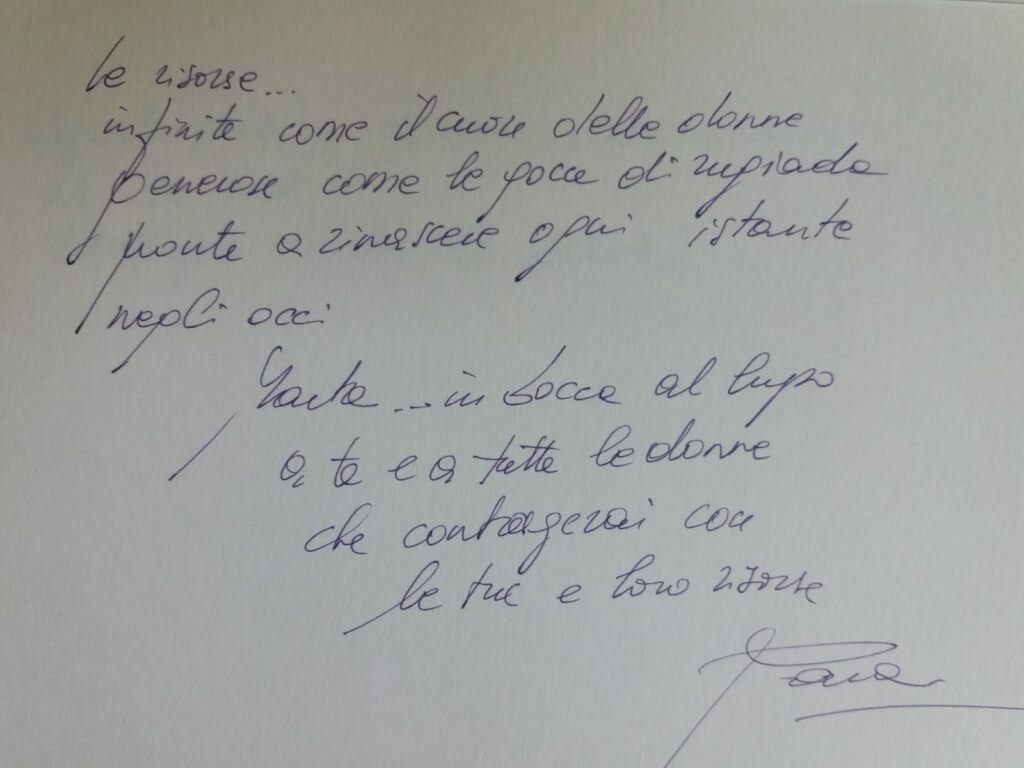 le risorse...
infinite come il cuore delle donne
generose come le gocce di rugiada
pronte a rinascere ogni istante
negli occi
... in bocca al lupo
a te e a tutte le donne
che contragerai con
le tue e loro risorse